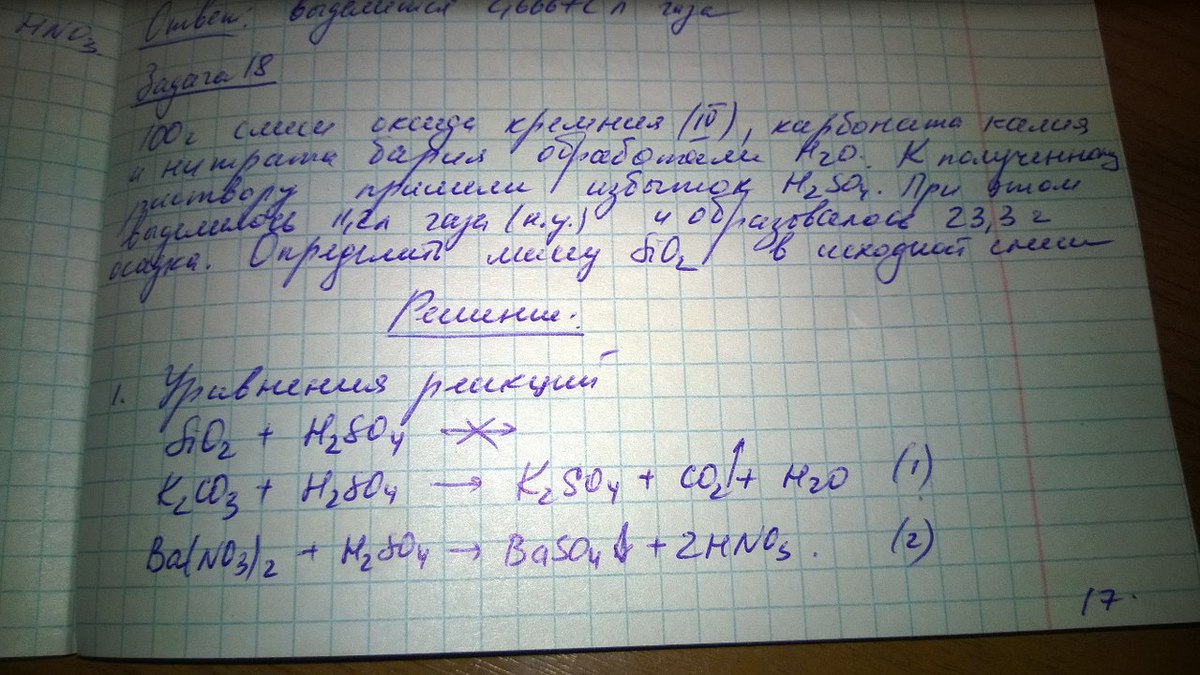 HNO3
Ответ: выделится л газа
Задача 18
100 г смеси оксида кремния (IV), карбоната калия
и нитрата бария обработали H2O. К полученному
раствору прилили избыток H2SO4. При этом
выделилось 11,2л газа (н.у.) и образовалось 23,3 г
осадка. Определить массу SiO2 в исходной смеси
Решение:
1. Уравнения реакций
SiO2 + H2SO4 ↛
K2CO3 + H2SO4 → K2SO4 + CO2↑ + H2O (1)
Ba(NO3)2 + H2SO4 → BaSO4↓ + 2HNO3. (2)
17.